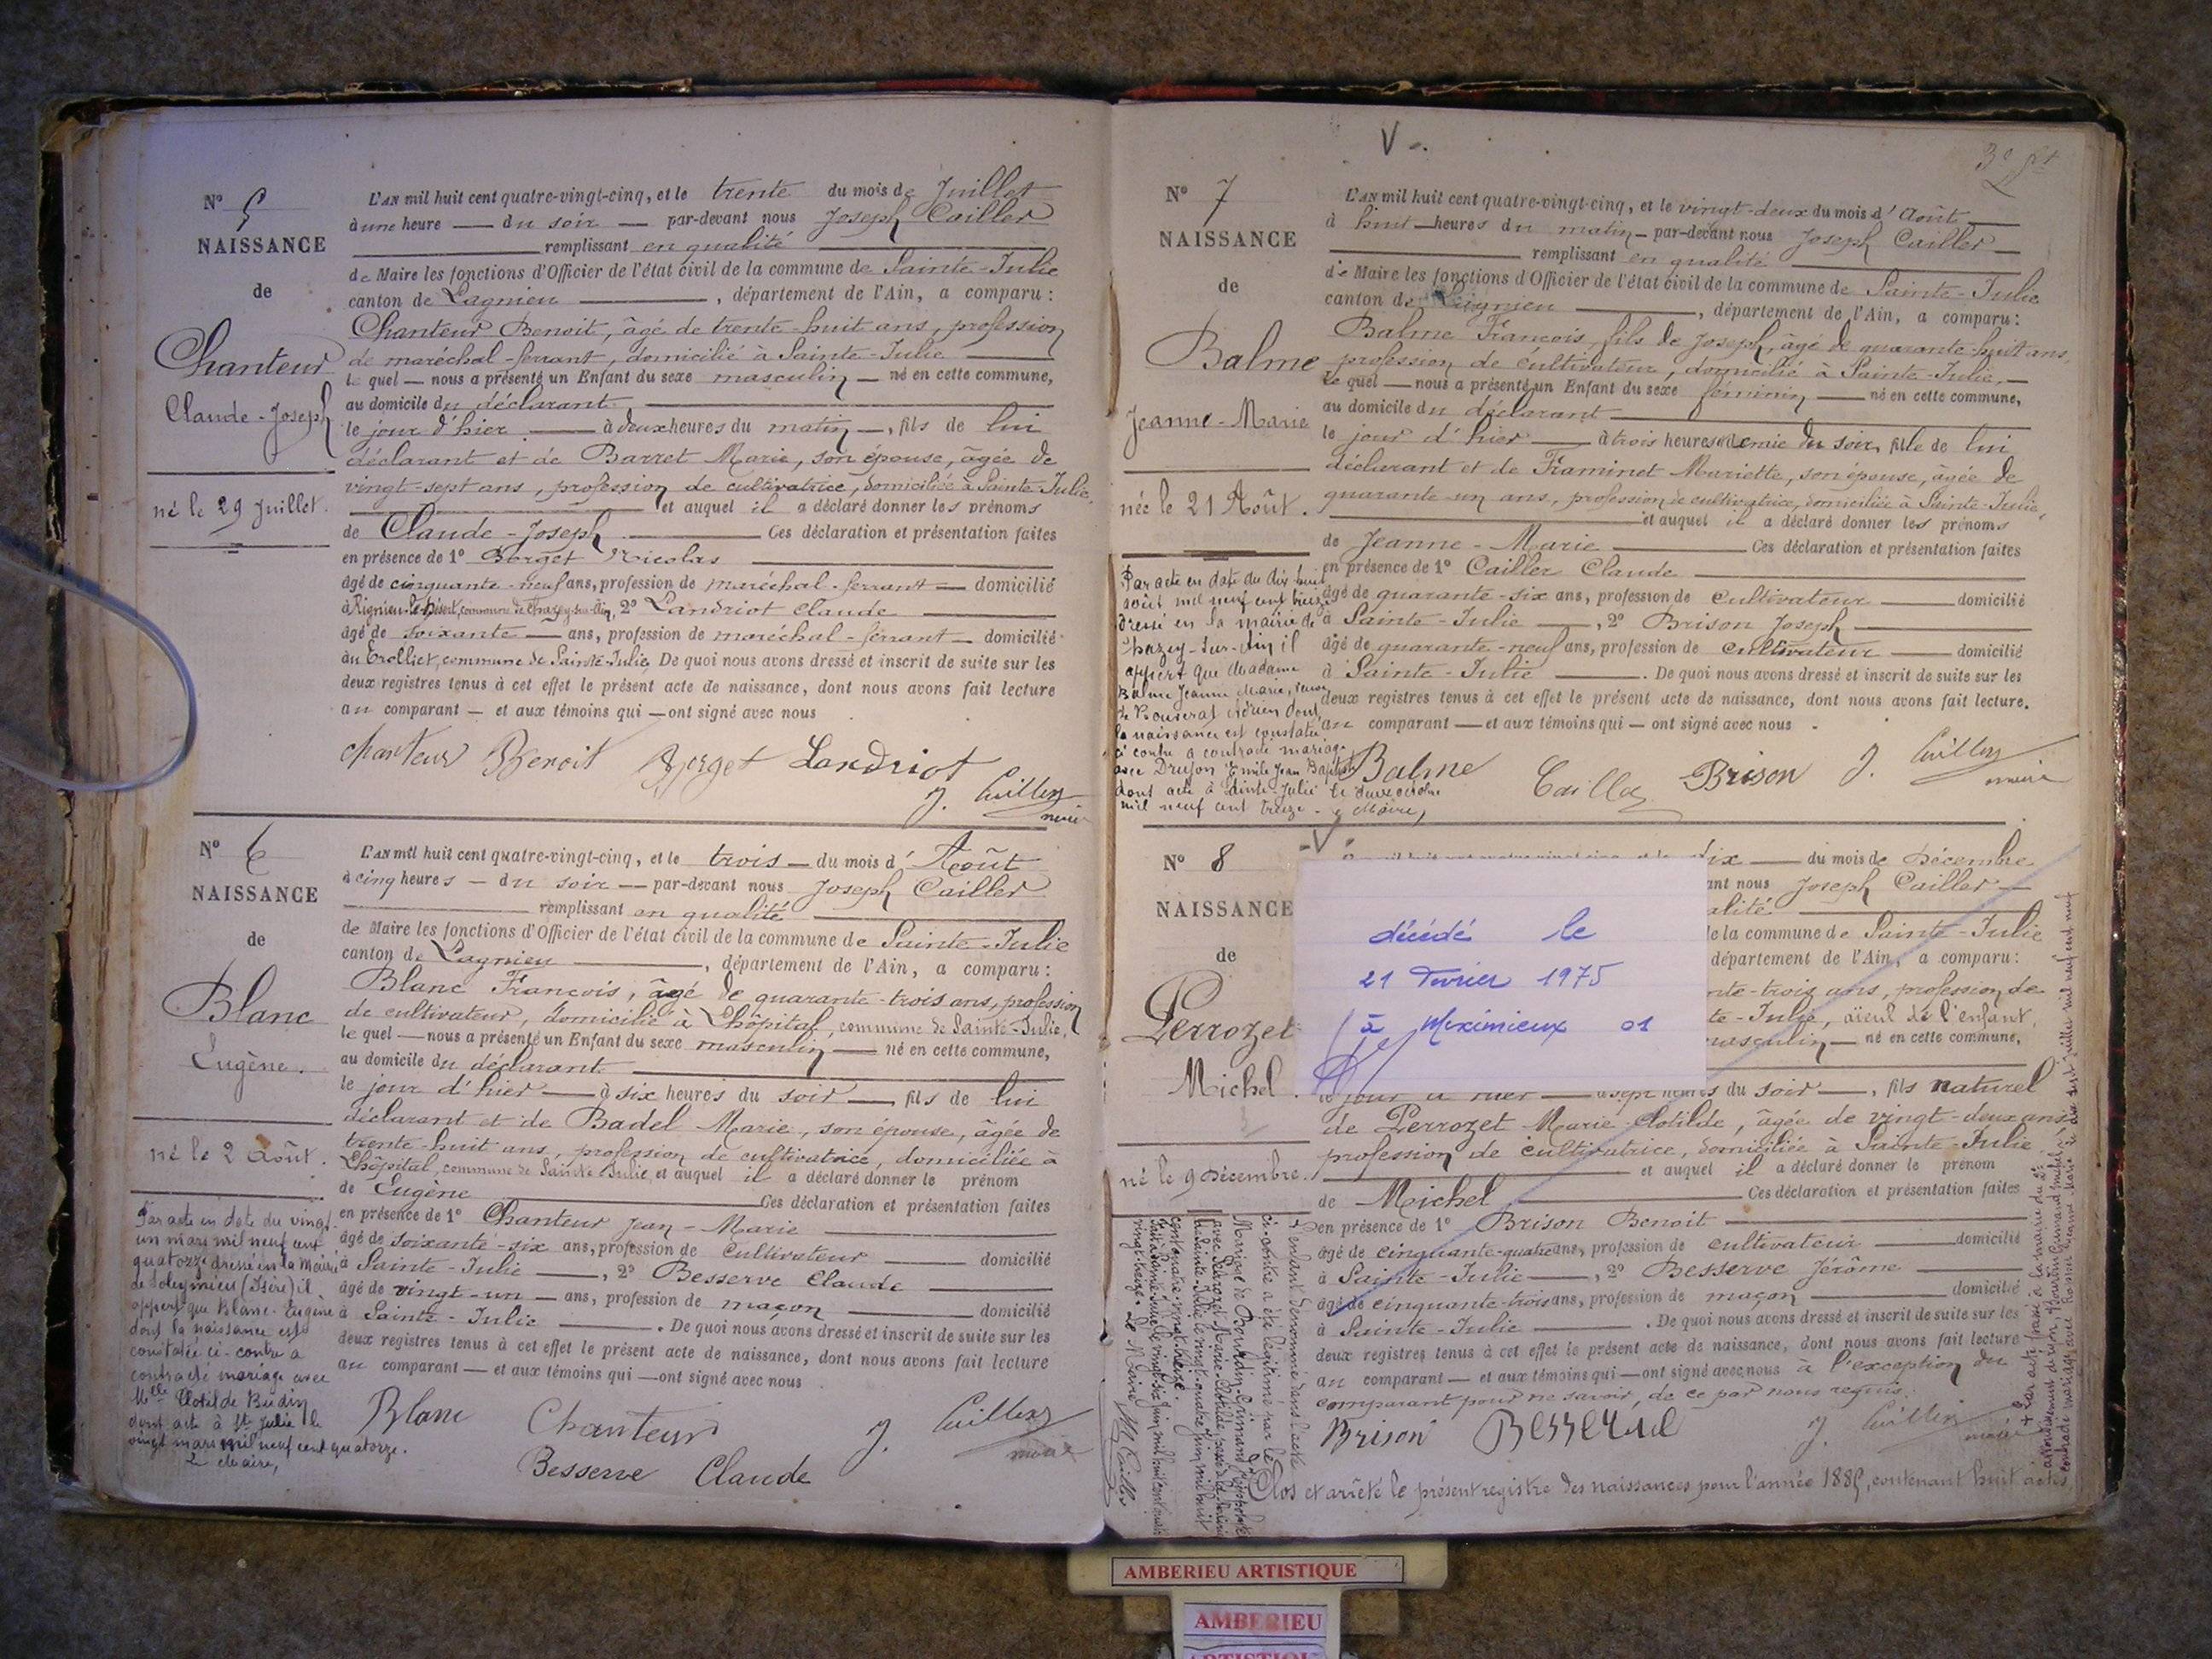 N° 5
NAISSANCE
de
Chanteur
Claude-Joseph
né le 29 Juillet.
L'AN mil huit cent quatre-vingt-cinq, et le trente du mois de Juillet
à une heure — du soir — par-devant nous Joseph Cailler
remplissant en qualité
de Maire les fonctions d'Officier de l'état civil de la commune de Sainte-Julie
canton de Lagnieu, département de l'Ain, a comparu :
Chanteur Benoit, âgé de trente-huit ans, profession
de maréchal-ferrant, domicilié à Sainte-Julie
le quel — nous a présenté un Enfant du sexe masculin — né en cette commune,
au domicile du déclarant
le jour d'hier — à deux heures du matin —, fils de lui
déclarant et de Barret Marie, son épouse, âgée de
vingt-sept ans, profession de cultivatrice, domiciliée à Sainte-Julie,
et auquel il a déclaré donner les prénoms
de Claude-Joseph — Ces déclaration et présentation faites
en présence de 1° Borget Nicolas
âgé de cinquante-neuf ans, profession de maréchal-ferrant — domicilié
à Rignieu-le-Désert, commune de Chazey-sur-Ain, 2° Landriot Claude
âgé de soixante — ans, profession de maréchal-ferrant — domicilié
au Trolliet, commune de Sainte-Julie, De quoi nous avons dressé et inscrit de suite sur les
deux registres tenus à cet effet le présent acte de naissance, dont nous avons fait lecture
au comparant — et aux témoins qui — ont signé avec nous
chanteur Benoit Borget Landriot
J. Cailler
maire
N° 6
NAISSANCE
de
Blanc
Eugène.
né le 2 Août.
Par acte en date du vingt
un mars mil neuf cent
quatorze dressé en la Mairie
de Soleymieu (Isère) il
appert que Blanc Eugène
dont la naissance est
constatée ci-contre a
contracté mariage avec
Mlle Clotilde Budin
dont acte à Ste Julie le
vingt mars mil neuf cent quatorze.
Le Maire,
L'AN mil huit cent quatre-vingt-cinq, et le trois — du mois d'Août
à cinq heures — du soir — par-devant nous Joseph Cailler
remplissant en qualité
de Maire les fonctions d'Officier de l'état civil de la commune de Sainte-Julie
canton de Lagnieu, département de l'Ain, a comparu :
Blanc François, âgé de quarante-trois ans, profession
de cultivateur, domicilié à Lhôpital, commune de Sainte-Julie,
le quel — nous a présenté un Enfant du sexe masculin — né en cette commune,
au domicile du déclarant
le jour d'hier — à six heures du soir —, fils de lui
déclarant et de Badel Marie, son épouse, âgée de
trente-huit ans, profession de cultivatrice, domiciliée à
Lhôpital, commune de Sainte Julie, et auquel il a déclaré donner le prénom
de Eugène — Ces déclaration et présentation faites
en présence de 1° Chanteur Jean-Marie
âgé de soixante-six ans, profession de Cultivateur — domicilié
à Sainte-Julie —, 2° Besserve Claude
âgé de vingt-un — ans, profession de maçon — domicilié
à Sainte-Julie — . De quoi nous avons dressé et inscrit de suite sur les
deux registres tenus à cet effet le présent acte de naissance, dont nous avons fait lecture
au comparant — et aux témoins qui — ont signé avec nous
Blanc Chanteur J. Cailler
maire
Besserve Claude
V
N° 7
NAISSANCE
de
Balme
Jeanne-Marie
née le 21 Août.
Par acte en date du dix-huit
août mil neuf cent treize
dressé en la mairie de
Chazey-sur-Ain il
appert que Madame
Balme Jeanne Marie, veuve
de Bouverat Adrien dont
la naissance est constatée
ci contre a contracté mariage
avec Drujon Emile Jean Baptiste
dont acte à Sainte-Julie le douze octobre
mil neuf cent treize - Le Maire,
L'AN mil huit cent quatre-vingt-cinq, et le vingt-deux du mois d'Août
à huit — heures du matin — par-devant nous Joseph Cailler
remplissant en qualité
de Maire les fonctions d'Officier de l'état civil de la commune de Sainte-Julie
canton de Lagnieu, département de l'Ain, a comparu :
Balme François, fils de Joseph, âgé de quarante-huit ans,
profession de cultivateur, domicilié à Sainte-Julie, —
le quel — nous a présenté un Enfant du sexe féminin — né en cette commune,
au domicile du déclarant
le jour d'hier — à trois heures et demie du soir, fille de lui
déclarant et de Framinet Mariette, son épouse, âgée de
quarante-un ans, profession de cultivatrice, domiciliée à Sainte-Julie,
et auquel il a déclaré donner les prénoms
de Jeanne-Marie — Ces déclaration et présentation faites
en présence de 1° Cailler Claude
âgé de quarante-six ans, profession de Cultivateur — domicilié
à Sainte-Julie —, 2° Brison Joseph
âgé de quarante-neuf ans, profession de cultivateur — domicilié
à Sainte-Julie — . De quoi nous avons dressé et inscrit de suite sur les
deux registres tenus à cet effet le présent acte de naissance, dont nous avons fait lecture.
au comparant — et aux témoins qui — ont signé avec nous
Balme Cailler Brison J. Cailler
maire
V
N° 8
NAISSANCE
de
Perrozet
Michel.
né le 9 Décembre.
décédé le
21 Février 1975
à Meximieux 01
dix — du mois de Décembre
ant nous Joseph Cailler —
alité
de la commune de Sainte-Julie
département de l'Ain, a comparu :
nte-trois ans, profession de
te-Julie, aïeul de l'enfant,
masculin — né en cette commune,
le jour d'hier — à sept heures du soir —, fils naturel
de Perrozet Marie-Clotilde, âgée de vingt-deux ans,
profession de cultivatrice, domiciliée à Sainte-Julie
et auquel il a déclaré donner le prénom
de Michel — Ces déclaration et présentation faites
en présence de 1° Brison Benoit
âgé de cinquante-quatre ans, profession de cultivateur — domicilié
à Sainte-Julie —, 2° Besserve Jérôme
âgé de cinquante-trois ans, profession de maçon — domicilié
à Sainte-Julie — . De quoi nous avons dressé et inscrit de suite sur les
deux registres tenus à cet effet le présent acte de naissance, dont nous avons fait lecture
au comparant — et aux témoins qui — ont signé avec nous à l'exception du
comparant pour ne savoir, de ce par nous requis.
Brison Besserve J. Cailler
maire
Clos et arrêté le présent registre des naissances pour l'année 1885, contenant huit actes
L'enfant dénommé dans l'acte
ci-contre a été légitimé par le
Mariage de Bourdin
avec Perrozet Marie-Clotilde
Le Maire
AMBERIEU ARTISTIQUE
AMBERIEU
ARTISTIQUE